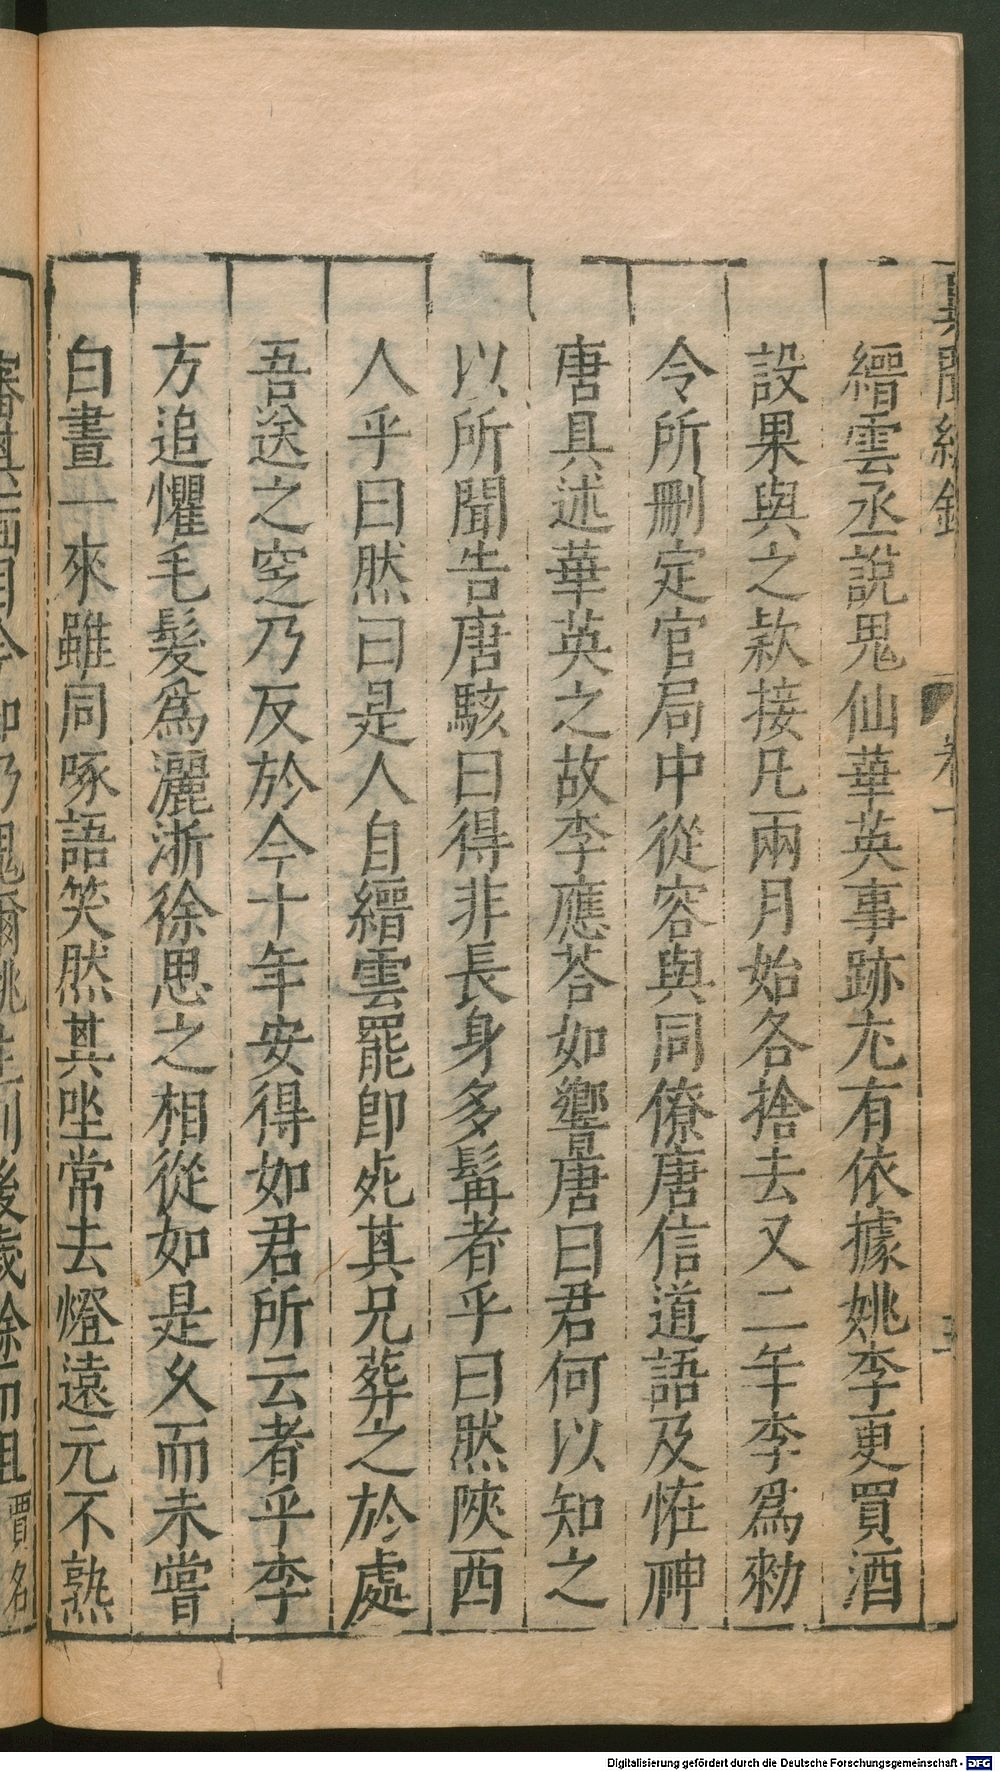 縉雲丞說鬼仙華英事跡尤有依據姚李更買酒
設果與之款接凡兩月始各捨去又二年李爲勑
令所刪定官局中從容與同僚唐信道語及恠神
唐具述華英之故李應荅如響唐曰君何以知之
以所聞告唐駭曰得非長身多髯者乎曰然陝西
人乎曰然曰是人自縉雲罷卽死其兄葬之於處
吾送之窆乃反於今十年安得如君所云者乎李
方追懼毛髮爲灑淅徐思之相從如是久而未嘗
白晝一來雖同啄語笑然其坐常去燈遠元不熟
Digitalisierung gefördert durch die Deutsche Forschungsgemeinschaft - DFG